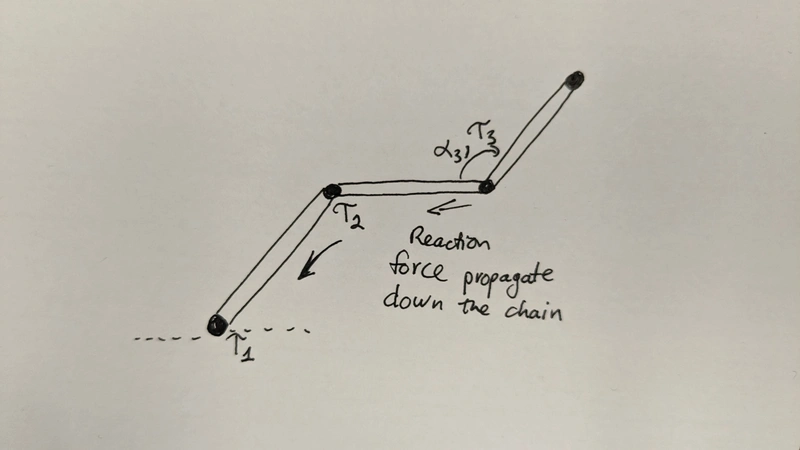 τ3
α3,
τ2
Reaction
force propagate
down the chain
τ1